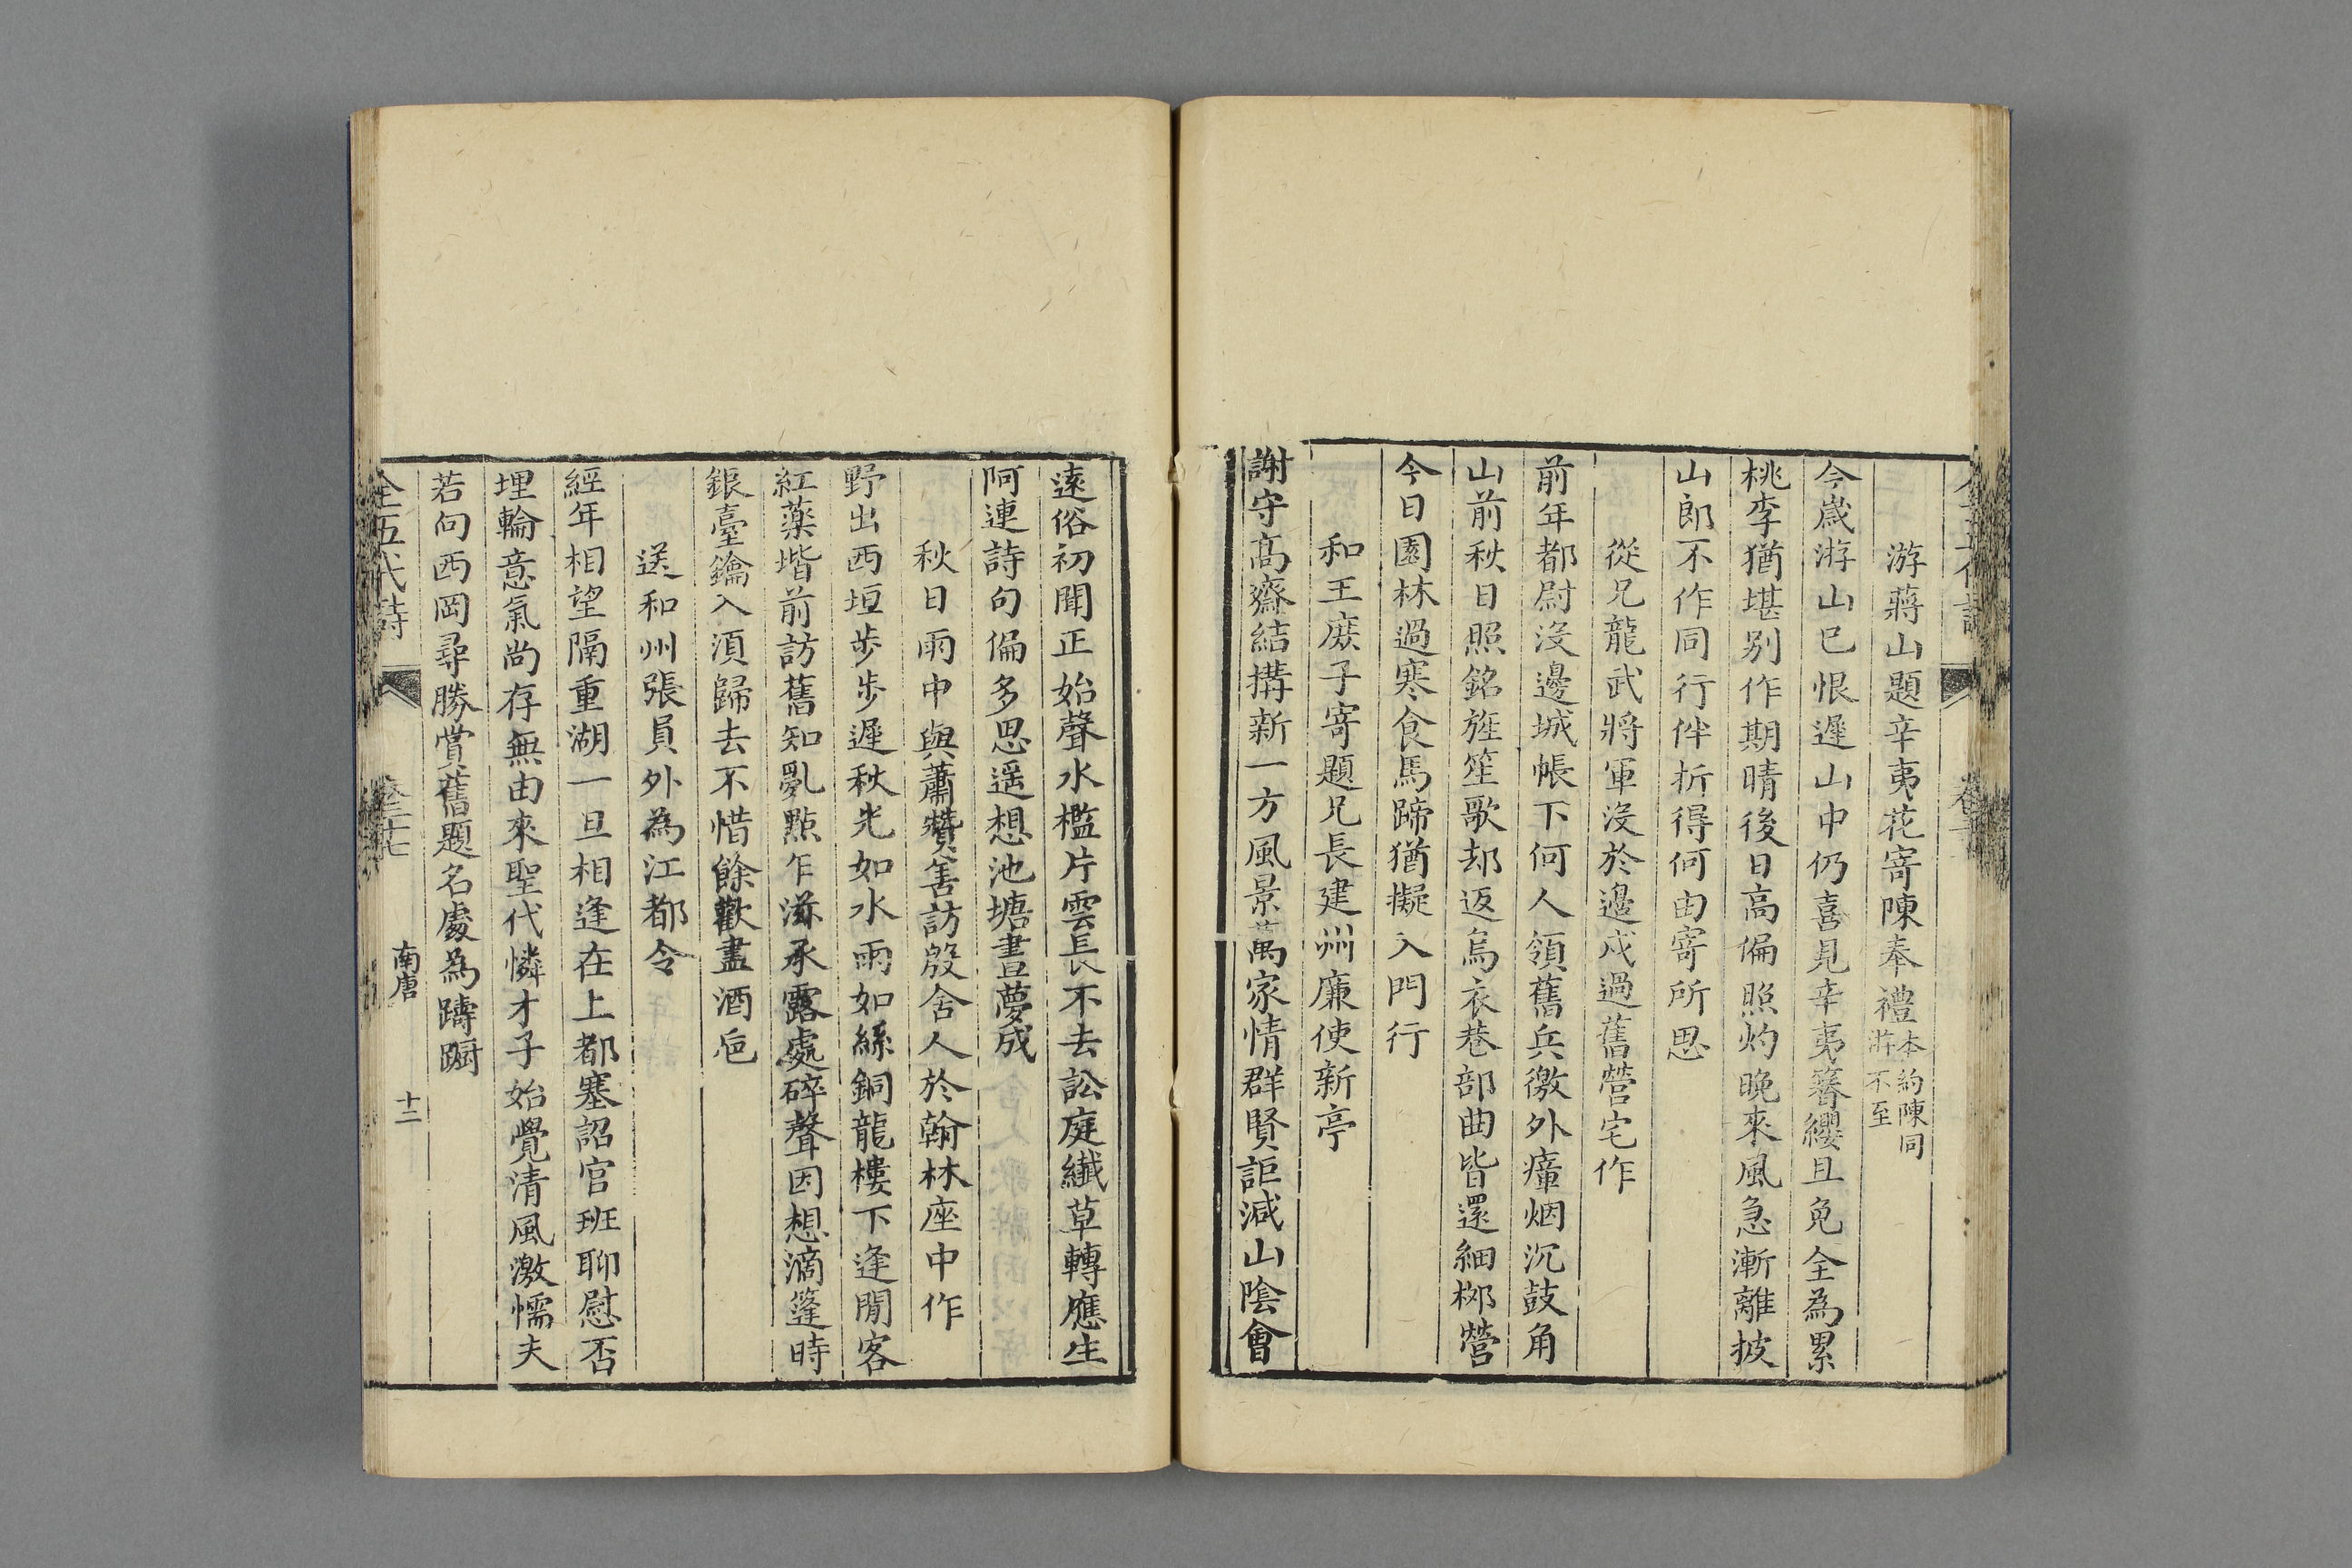 游蔣山題辛夷花寄陳奉禮本約陳同游不至
今歲游山已恨遲山中仍喜見辛夷簪纓且免全為累
桃李猶堪别作期晴後日高偏照灼晚來風急漸離披
山郎不作同行伴折得何由寄所思
從兄龍武將軍沒於邊戍過舊營宅作
前年都尉沒邊城帳下何人領舊兵徼外瘴烟沉鼓角
山前秋日照銘旌笙歌却返烏衣巷部曲皆還細柳營
今日園林過寒食馬蹄猶擬入門行
和王庻子寄題兄長建州廉使新亭
謝守高齋結搆新一方風景萬家情群賢詎减山陰會
遠俗初聞正始聲水檻片雲長不去訟庭纎草轉應生
阿連詩句偏多思遥想池塘晝夢成
秋日雨中與蕭贊善訪殷舍人於翰林座中作
野出西垣步步遲秋光如水雨如絲銅龍樓下逢閒客
紅藥堦前訪舊知亂點乍滋承露處碎聲因想滴篷時
銀臺鑰入須歸去不惜餘歡盡酒巵
送和州張員外為江都令
經年相望隔重湖一旦相逢在上都塞詔官班聊慰否
埋輪意氣尚存無由來聖代憐才子始覺清風激懦夫
若向西岡尋勝賞舊題名處為躊躕
全五代詩 卷三十七 南唐 十二